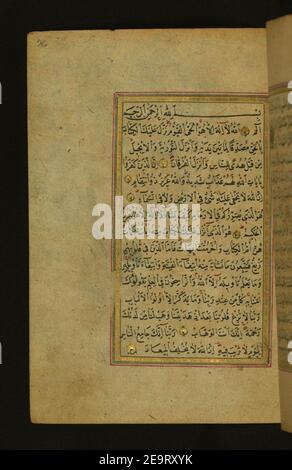 بسم الله الرحمن الرحيم
الم الله لا اله الا هو الحي القيوم نزل عليك الكتاب
بالحق مصدقا لما بين يديه وانزل التورية والانجيل
من قبل هدى للناس وانزل الفرقان ان الذين كفروا
بايات الله لهم عذاب شديد والله عزيز ذو انتقام
ان الله لا يخفى عليه شئ في الارض ولا في السماء
هو الذي يصوركم في الارحام كيف يشاء لا اله الا هو العزيز
الحكيم هو الذي انزل عليك الكتاب منه ايات محكمات
هن ام الكتاب واخر متشابهات فاما الذين في قلوبهم
زيغ فيتبعون ما تشابه منه ابتغاء الفتنة وابتغاء تاويله
وما يعلم تاويله الا الله والراسخون في العلم يقولون
امنا به كل من عند ربنا وما يذكر الا اولوا الالباب
ربنا لا تزغ قلوبنا بعد اذ هديتنا وهب لنا من لدنك
رحمة انك انت الوهاب ربنا انك جامع الناس
ليوم لا ريب فيه ان الله لا يخلف الميعاد
2E9RXYK